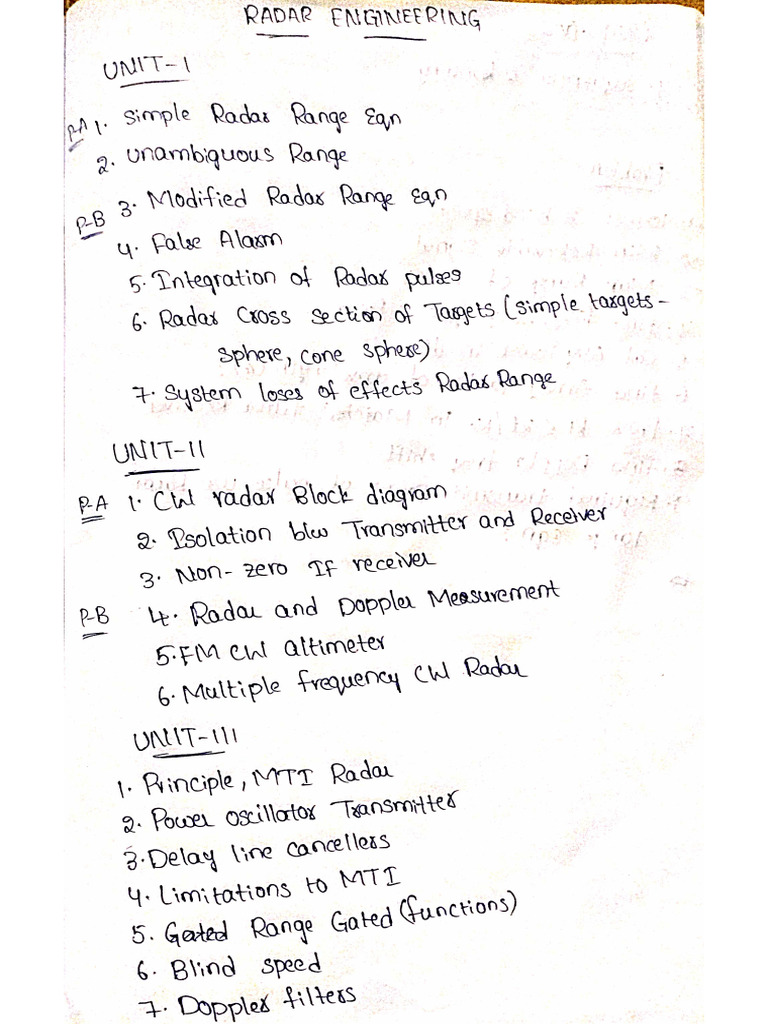 RADAR ENGINEERING
UNIT-I
P-A 1. Simple Radar Range Eqn
2. Unambiguous Range
3. Modified Radar Range Eqn
P-B
4. False Alarm
5. Integration of Radar pulses
6. Radar Cross section of Targets (simple targets-
sphere, cone sphere)
7. System loses of effects Radar Range
UNIT-II
P-A 1. CW radar Block diagram
2. Isolation b/w Transmitter and Receiver
3. Non-zero If receiver
P-B 4. Radar and Doppler Measurement
5. FM CW altimeter
6. Multiple frequency CW Radar
UNIT-III
1. Principle, MTI Radar
2. Power oscillator Transmitter
3. Delay line cancellers
4. Limitations to MTI
5. Gated Range Gated (functions)
6. Blind speed
7. Doppler filters